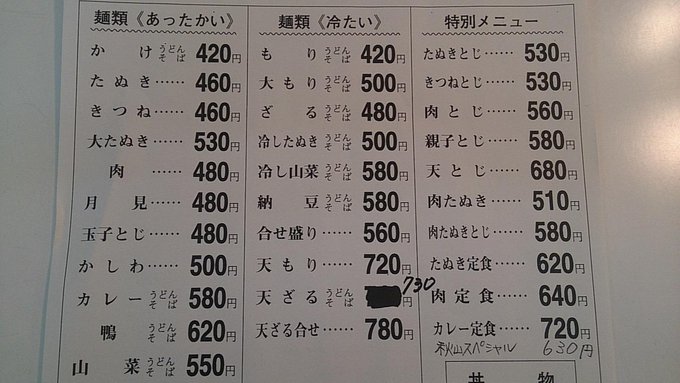 麺類《あったかい》
かけ うどん そば 420円
たぬき…… 460円
きつね…… 460円
大たぬき…… 530円
肉…… 480円
月見…… 480円
玉子とじ…… 480円
かしわ…… 500円
カレー うどん そば 580円
鴨 うどん そば 620円
山菜 うどん そば 550円
麺類《冷たい》
もり うどん そば 420円
大もり うどん そば 500円
ざる うどん そば 480円
冷したぬき うどん そば 500円
冷し山菜 うどん そば 580円
納豆 うどん そば 580円
合せ盛り…… 560円
天もり…… 720円
天ざる うどん そば 730円
天ざる合せ…… 780円
特別メニュー
たぬきとじ…… 530円
きつねとじ…… 530円
肉とじ…… 560円
親子とじ…… 580円
天とじ…… 680円
肉たぬき…… 510円
肉たぬきとじ…… 580円
たぬき定食…… 620円
肉定食…… 640円
カレー定食…… 720円
秋山スペシャル 630円
丼物